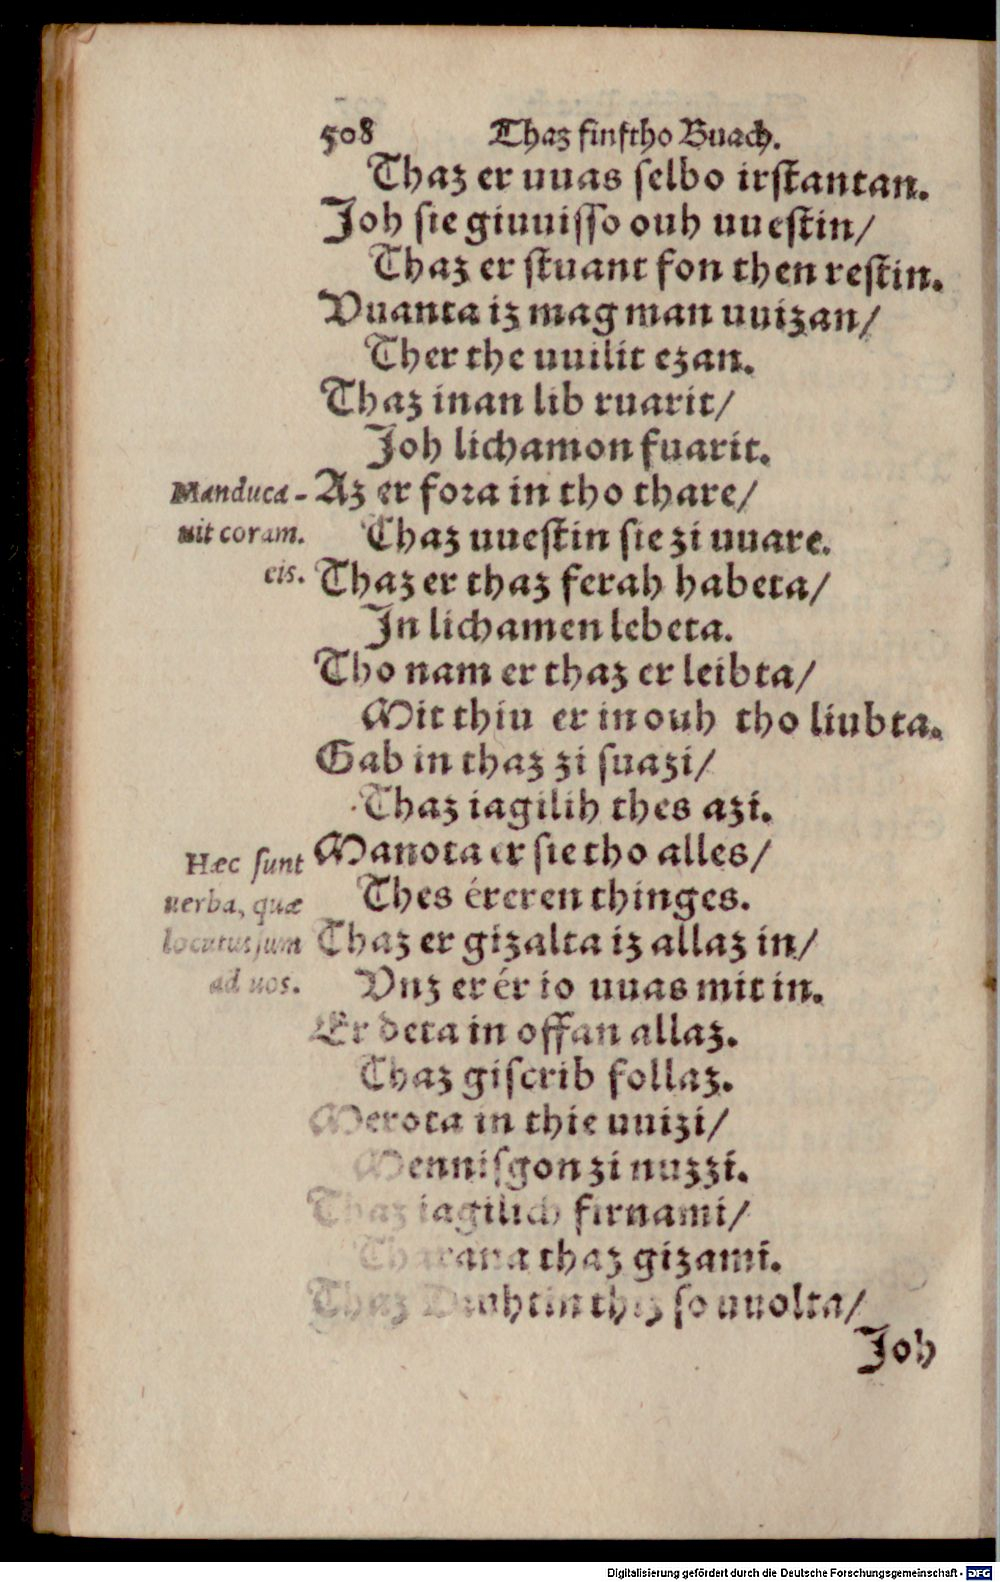 508 Thaz finftho Buach.
Thaz er uuas selbo irstantan.
Joh sie giuuisso ouh uuestin/
Thaz er stuant fon then restin.
Vuanta iz mag man uuizan/
Ther the uuilit ezan.
Thaz inan lib ruarit/
Joh lichamon fuarit.
Manduca-
uit coram.
eis.
Az er fora in tho thare/
Thaz uuestin sie zi uuare.
Thaz er thaz ferah habeta/
In lichamen lebeta.
Tho nam er thaz er leibta/
Mit thiu er in ouh tho liubta.
Gab in thaz zi suazi/
Thaz iagilih thes azi.
Hæc sunt
uerba, quæ
locutus sum
ad uos.
Manota er sie tho alles/
Thes éreren thinges.
Thaz er gizalta iz allaz in/
Vnz er ér io uuas mit in.
Er deta in offan allaz.
Thaz giscrib follaz.
Merota in thie uuizi/
Mennisgon zi nuzzi.
Thaz iagilich firnami/
Tharana thaz gizami.
Thaz Druhtin thiz so uuolta/
Joh
Digitalisierung gefördert durch die Deutsche Forschungsgemeinschaft - DFG